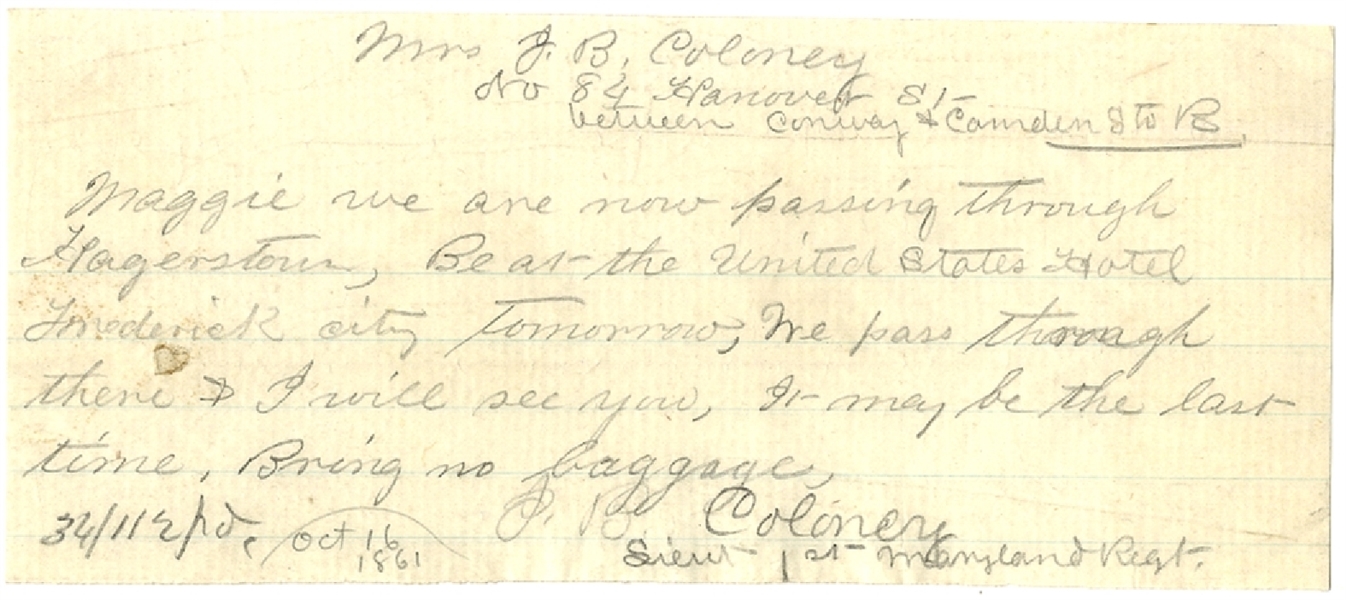 Mrs J. B. Coloney
No 84 Hanover St
between Conway & Camden Sts B.
Maggie we are now passing through
Hagerstown, Be at the United States Hotel
Frederick city tomorrow, We pass through
there & I will see you, It may be the last
time, Bring no baggage,
J. B. Coloney
Lieut 1st Maryland Regt.
34/112 pd.
Oct 16
1861